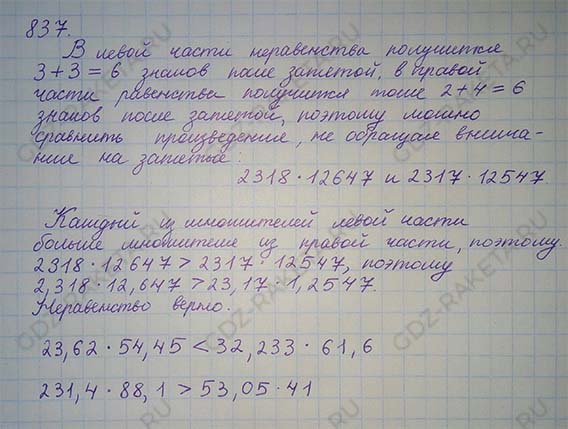 837.
В левой части неравенства получится
3+3=6 знаков после запятой, в правой
части равенства получится тоже 2+4=6
знаков после запятой, поэтому можно
сравнить произведения, не обращая внима-
ние на запятые:
2318 · 12647 и 2317 · 12547.
Каждый из множителей левой части
больше множителе из правой части, поэтому.
2318 · 12647 > 2317 · 12547, поэтому
2,318 · 12,647 > 23,17 · 1,2547.
Неравенство верно.
23,62 · 54,45 < 32,233 · 61,6
231,4 · 88,1 > 53,05 · 41
GDZ-RAKETA.RU